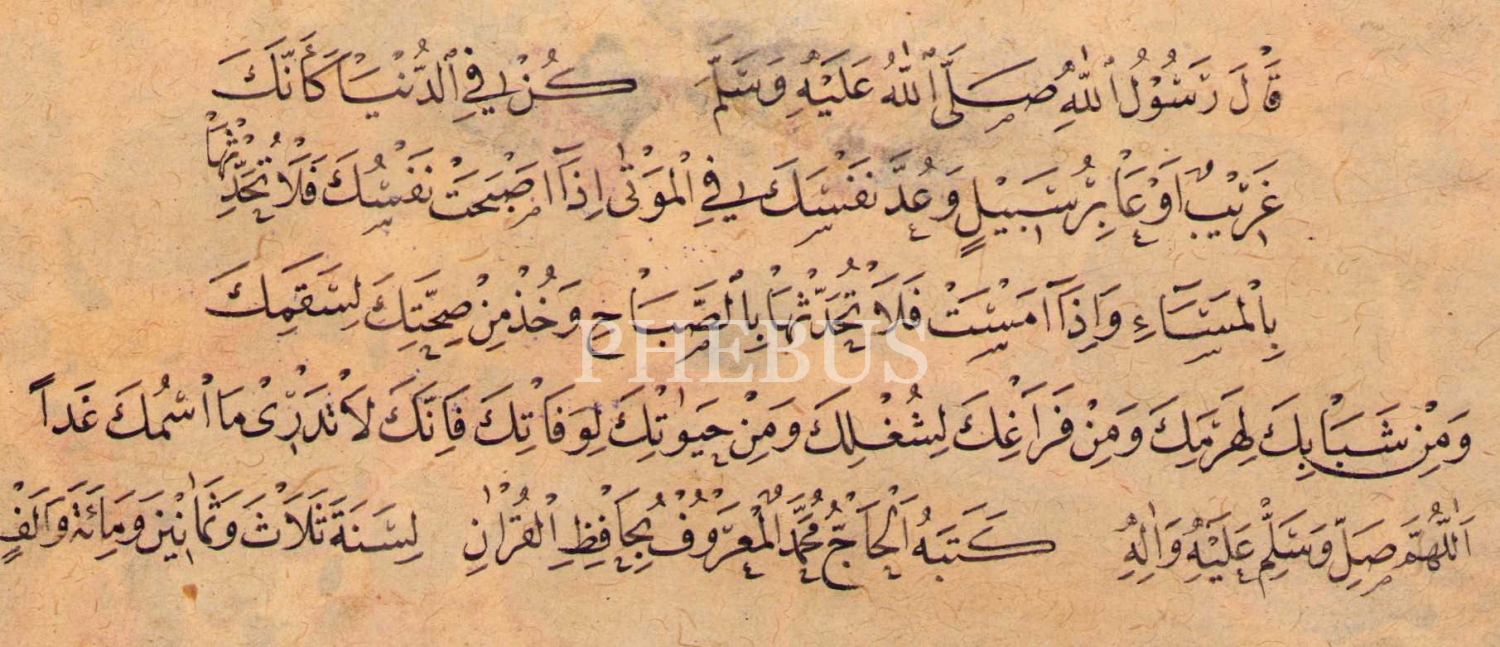 قَالَ رَسُوْلُ ٱللّٰهِ صَلَّى ٱللّٰهُ عَلَيْهِ وَسَلَّمَ كُنْ فِي ٱلدُّنْيَا كَأَنَّكَ
غَرِيْبٌ اَوْ عَابِرُ سَبِيْلٍ وَعُدَّ نَفْسَكَ فِي الْمَوْتٰى اِذَآ اصْبَحَتْ نَفْسُكَ فَلَا تُحَدِّثْهَا
بِالْمَسَآءِ وَاِذَآ امْسَتْ فَلَا تُحَدِّثْهَا بِالصَّبَاحِ وَخُذْ مِنْ صِحَّتِكَ لِسَقَمِكَ
PHEBUS
وَمِنْ شَبَابِكَ لِهَرَمِكَ وَمِنْ فَرَاغِكَ لِشُغْلِكَ وَمِنْ حَيٰوتِكَ لِوَفَاتِكَ فَاِنَّكَ لَا تَدْرِىْ مَا اسْمُكَ غَداً
اَللّٰهُمَّ صَلِّ وَسَلِّمْ عَلَيْهِ وَاٰلِهِ كَتَبَهُ اَلْحَاجُّ مُحَمَّدٌ الْمَعْرُوْفُ بِحَافِظِ الْقُرْاٰنِ لِسَنَةِ ثَلَاثَ وَثَمَانِيْنَ وَمِائَةٍ وَاَلْفٍ